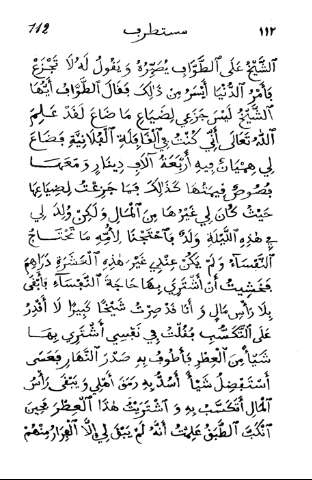 ١١٢ مستطرف 112
الشَّيْخُ عَلَى الطَّوَّافِ يُصَبِّرُهُ وَيَقُولُ لَهُ لَا تَجْزَعْ
فَأَمْرُ الدُّنْيَا أَيْسَرُ مِن ذَلِكَ فَقَالَ الطَّوَّافُ أَيُّهَا
الشَّيْخُ لَيْسَ جَزَعِي لِضَيَاعِ مَا ضَاعَ لَقَدْ عَلِمَ
اللهُ تَعَالَى أَنِّي كُنْتُ فِي القَافِلَةِ الفُلَانِيَّةِ فَضَاعَ
لِي هِمْيَانٌ فِيهِ أَرْبَعَةُ آلَافِ دِينَارٍ وَمَعَهَا
فُصُوصٌ قِيمَتُهَا كَذَلِكَ فَمَا جَزِعْتُ لِضِيَاعِهَا
حَيْثُ كَانَ لِي غَيْرُهَا مِنَ المَالِ وَلَكِنْ وُلِدَ لِي
فِي هَذِهِ اللَّيْلَةِ وَلَدٌ فَاحْتَجْنَا لِأُمِّهِ مَا تَحْتَاجُ
النُّفَسَاءُ وَلَمْ يَكُنْ عِنْدِي غَيْرُ هَذِهِ العَشَرَةِ دَرَاهِمَ
فَخَشِيتُ أَنْ أَشْتَرِيَ بِهَا حَاجَةَ النُّفَسَاءِ فَأَبْقَى
بِلَا رَأْسِ مَالٍ وَأَنَا قَدْ صِرْتُ شَيْخًا كَبِيرًا لَا أَقْدِرُ
عَلَى التَّكَسُّبِ فَقُلْتُ فِي نَفْسِي أَشْتَرِي بِهَا
شَيْأً مِنَ العِطْرِ فَأَطُوفُ بِهِ صَدْرَ النَّهَارِ فَعَسَى
أَسْتَفْضِلُ شَيْأً أَسُدُّ بِهِ رَمَقَ أَهْلِي وَيَبْقَى رَأْسُ
المَالِ أَتَكَسَّبُ بِهِ وَاشْتَرَيْتُ هَذَا العِطْرَ فَحِينَ
انْكَبَّ الطَّبَقُ عَلِمْتُ أَنَّهُ لَمْ يَبْقَ لِي إِلَّا الفِرَارُ مِنْهُمْ